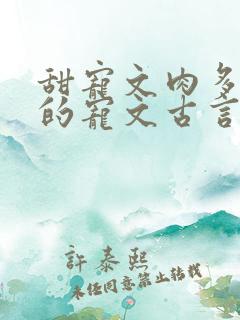 甜寵文肉多
的寵文古言
許泰熙
未经同意禁止转载